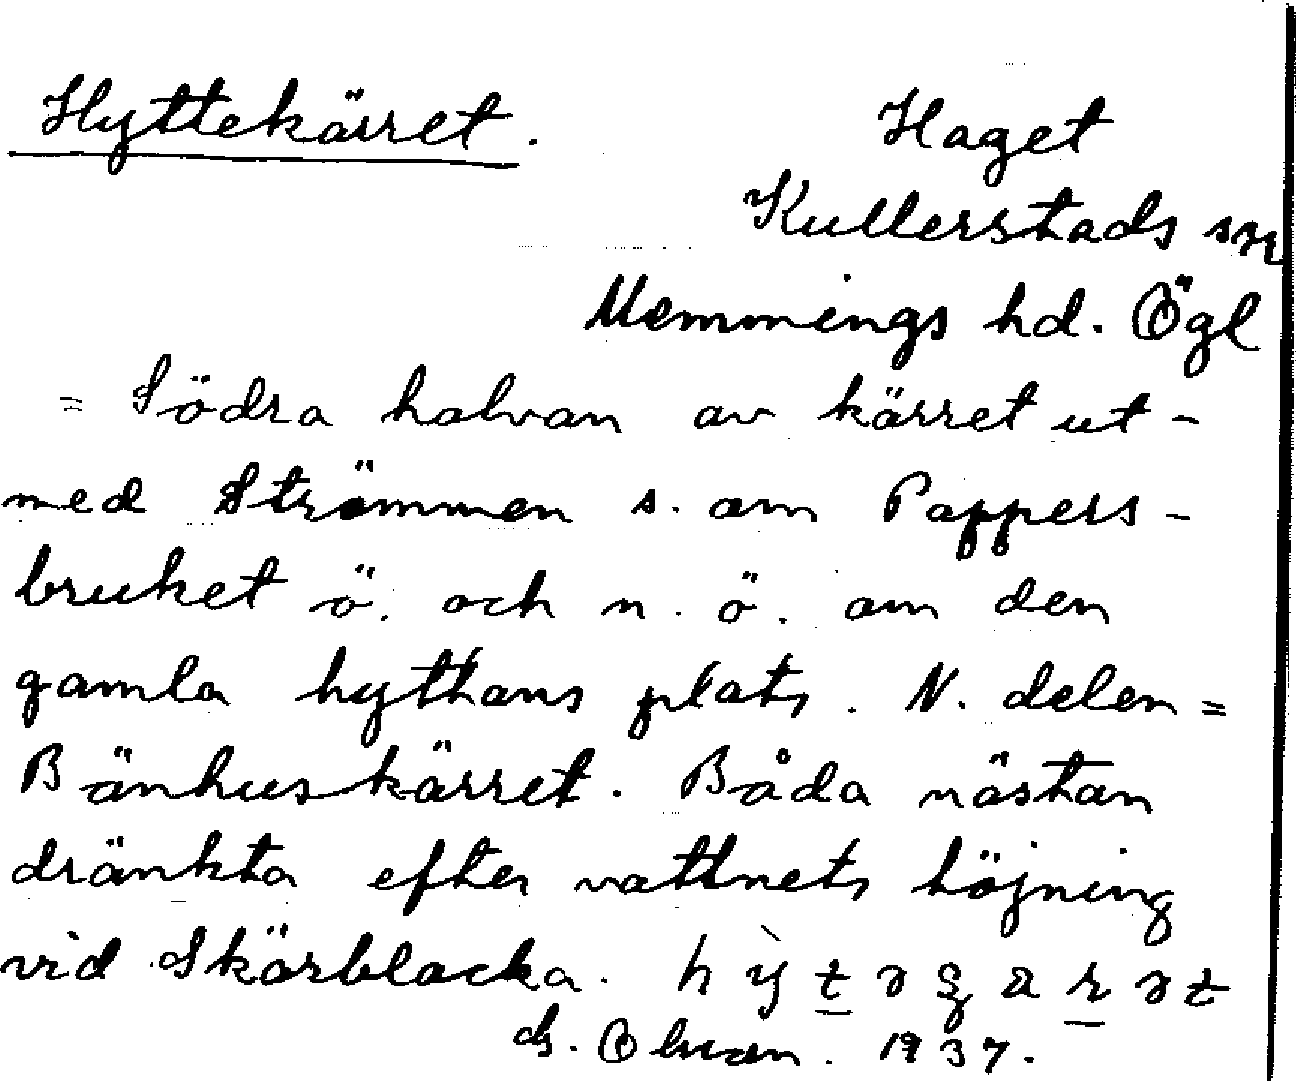 Hyttekärret. Haget
Kullerstads sn
Memmings hd. Ögl
= Södra halvan av kärret ut-
med Strömmen s. om Pappers-
bruket ö. och n. ö. om den
gamla hyttans plats. N. delen =
Bänhuskärret. Båda nästan
dränkta efter vattnets höjning
vid Skärblacka.
1937.